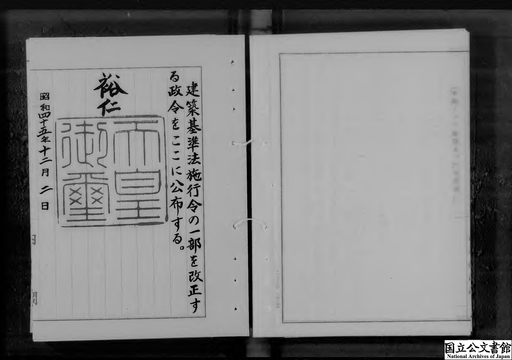 建築基準法施行令の一部を改正す
る政令をここに公布する。
裕仁
天皇
御璽
昭和四十五年十二月二日
国立公文書館
National Archives of Japan